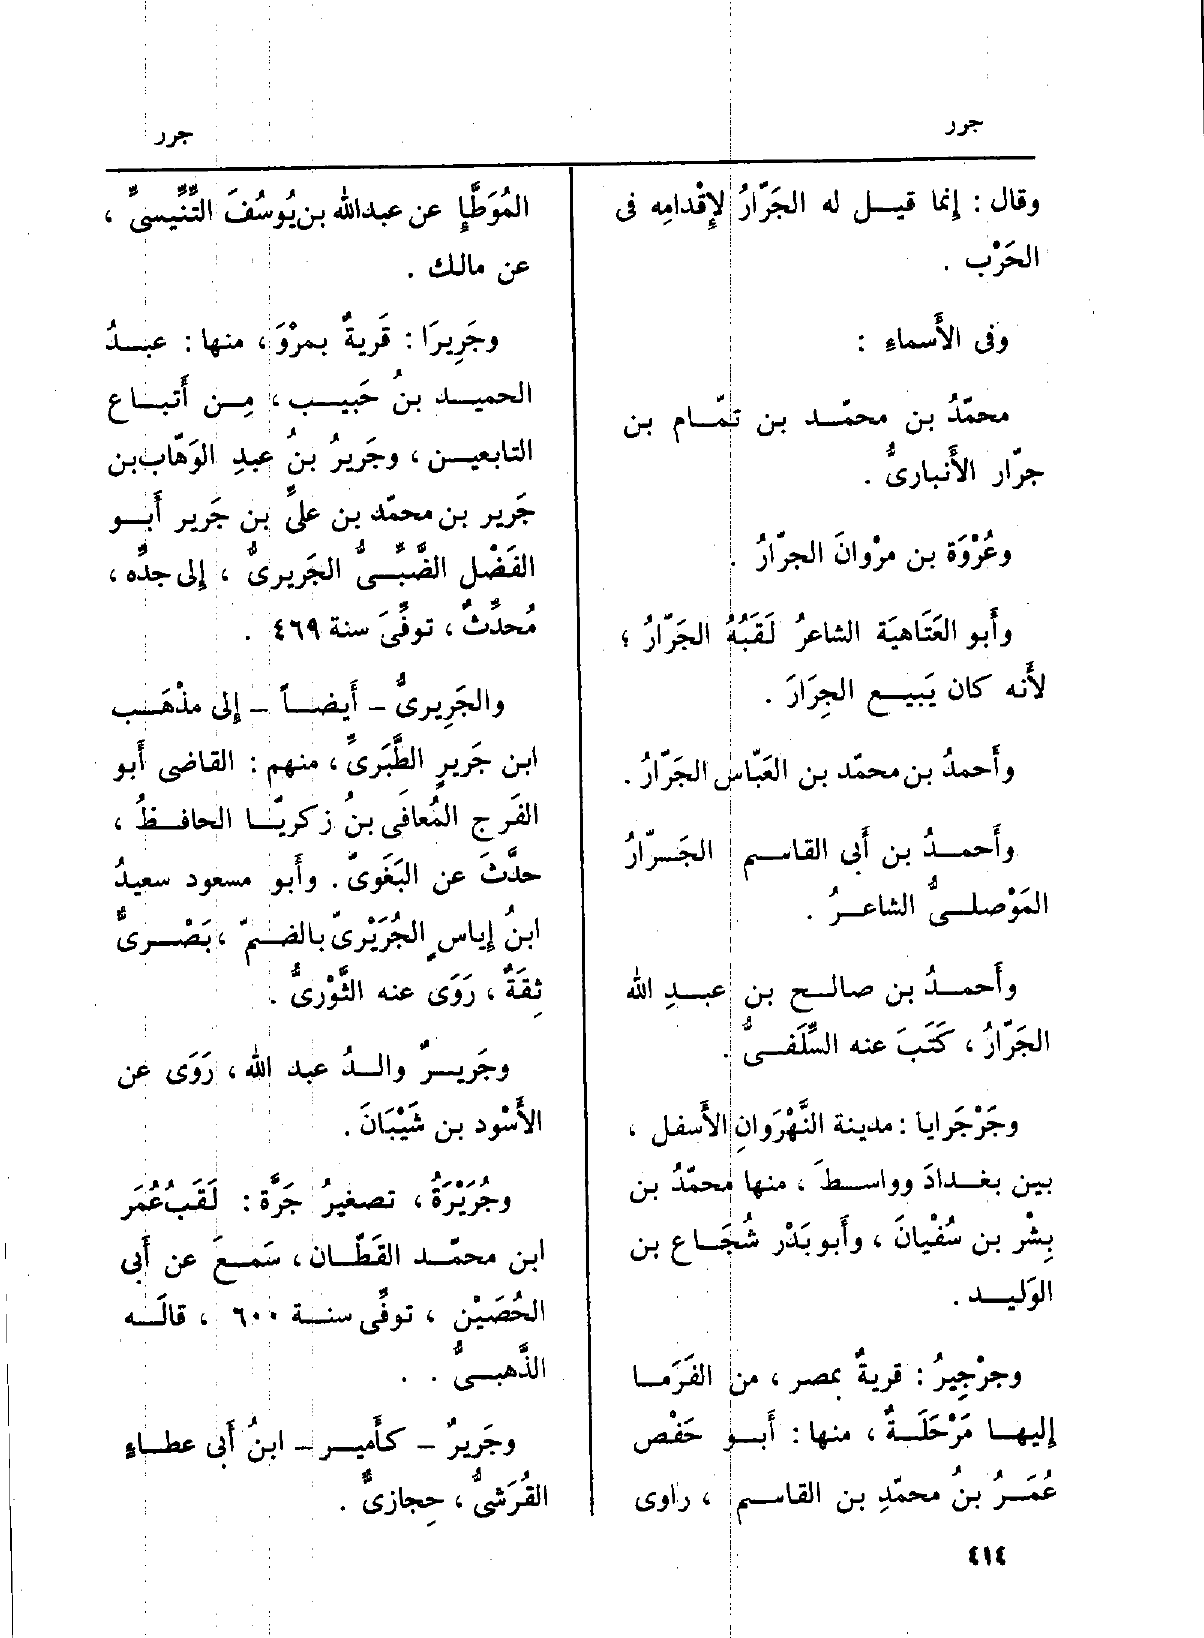 جرر
وقال : إنما قيل له الجَرّارُ لإقْدامِه فى
الحَرْب .
وفى الأَسماءِ :
محمّدُ بن محمّد بن تمّام بن
جرّار الأَنبارىُّ .
وعُرْوَة بن مرْوانَ الجرّارُ .
وأَبو العَتَاهيَة الشاعرُ لَقَبُهُ الجَرّارُ ؛
لأَنه كان يَبيع الجِرَارَ .
وأَحمدُ بن محمّد بن العَبّاس الجَرّارُ .
وأَحمدُ بن أَبى القاسم الجَرّارُ
المَوْصلىُّ الشاعرُ .
وأَحمدُ بن صالح بن عبدِ الله
الجَرّارُ ، كَتَبَ عنه السِّلَفىُّ .
وجَرْجَرايا : مدينة النَّهْرَوانِ الأَسفل ،
بين بغدادَ وواسطَ ، منها محمّدُ بن
بِشْر بن سُفْيانَ ، وأَبو بَدْر شُجَاع بن
الوَليد .
وجرْجِيرُ : قريةٌ بمصر ، من الفَرَما
إليها مَرْحَلَةٌ ، منها : أَبو حَفْص
عُمَرُ بنُ محمّدِ بن القاسم ، راوى
المُوَطَّإِ عن عبدالله بن يُوسُفَ التِّنِّيسىِّ ،
عن مالك .
وجَرِيرَا : قَريةٌ بمرْوَ ، منها : عبدُ
الحميد بنُ حَبيب ، مِن أَتباع
التابعين ، وجَريرُ بنُ عبدِ الوَهّاب بن
جَرير بن محمّد بن علىِّ بن جَرير أَبو
الفَضْل الضَّبِّىُّ الجَريرىُّ ، إلى جدِّه ،
مُحدِّثٌ ، توفِّىَ سنة ٤٦٩ .
والجَرِيرىُّ - أَيضاً - إلى مذْهَب
ابن جَريرٍ الطَّبَرىِّ ، منهم : القاضى أَبو
الفَرج المُعافَى بنُ زكريّا الحافظُ ،
حدَّثَ عن البَغَوىّ . وأَبو مسعود سعيدُ
ابنُ إياسٍ الجُرَيْرىّ بالضمّ ، بَصْرىٌّ
ثِقَةٌ ، رَوَى عنه الثَّوْرىُّ .
وجَريرٌ والدُ عبد الله ، رَوَى عن
الأَسْود بن شَيْبَانَ .
وجُرَيْرَةُ ، تصغيرُ جَرَّة : لَقَبُ عُمَر
ابن محمّد القَطّان ، سَمعَ عن أَبى
الحُصَيْن ، توفِّى سنة ٦٠٠ ، قالَه
الذَّهبىُّ .
وجَريرٌ - كأَمير - ابنُ أَبى عطاءٍ
القُرَشىُّ ، حِجازىٌّ .
جرر
٤١٤